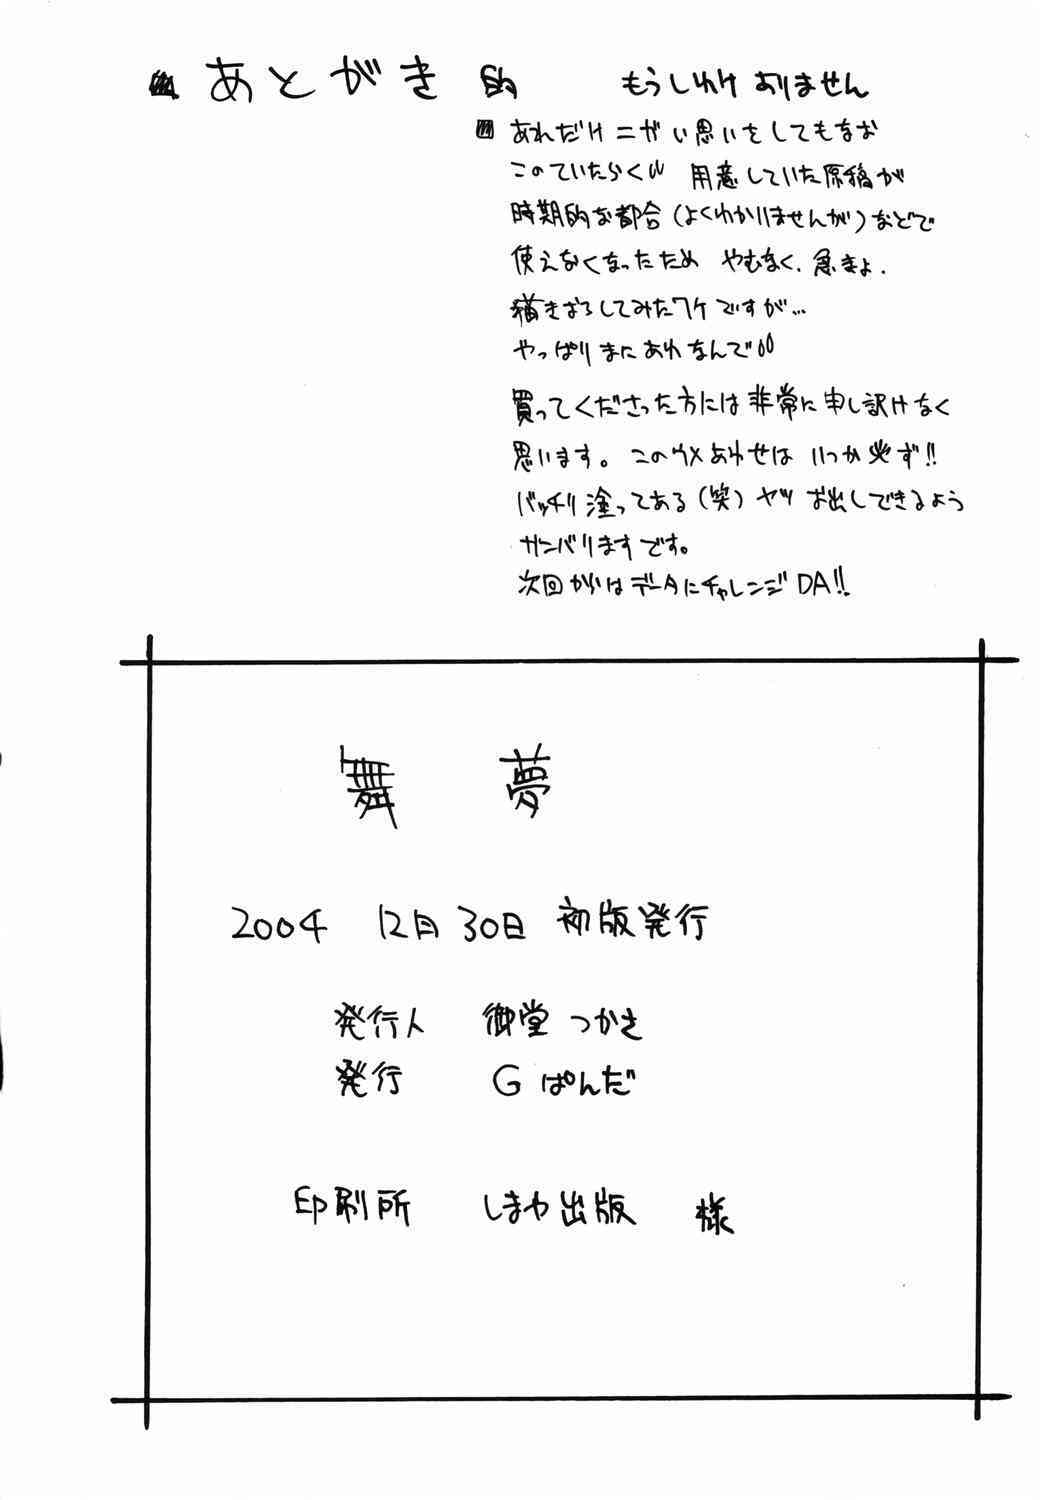 あとがき 的 もうしわけ ありません
あれだけ ニガい思いをしてもなお
このていたらく 用意していた原稿が
時期的な都合(よくわかりませんが)などで
使えなくなったため やむなく、急きょ、
描きおろしてみたワケですが…
やっぱり まにあわなんで
買ってくださった方には非常に申し訳けなく
思います。このウメあわせは いつか必ず!!
バッチリ塗ってある(笑)ヤツ お出しできるよう
ガンバリますです。
次回からはデータにチャレンジDA!!
舞 夢
2004 12月30日 初版発行
発行人 御堂つかさ
発行 Gぱんだ
印刷所 しまや出版 様